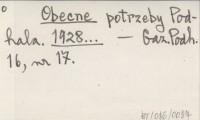 Obecne potrzeby Pod-
hala. 1928... — Gaz. Podh.
16, nr 17.